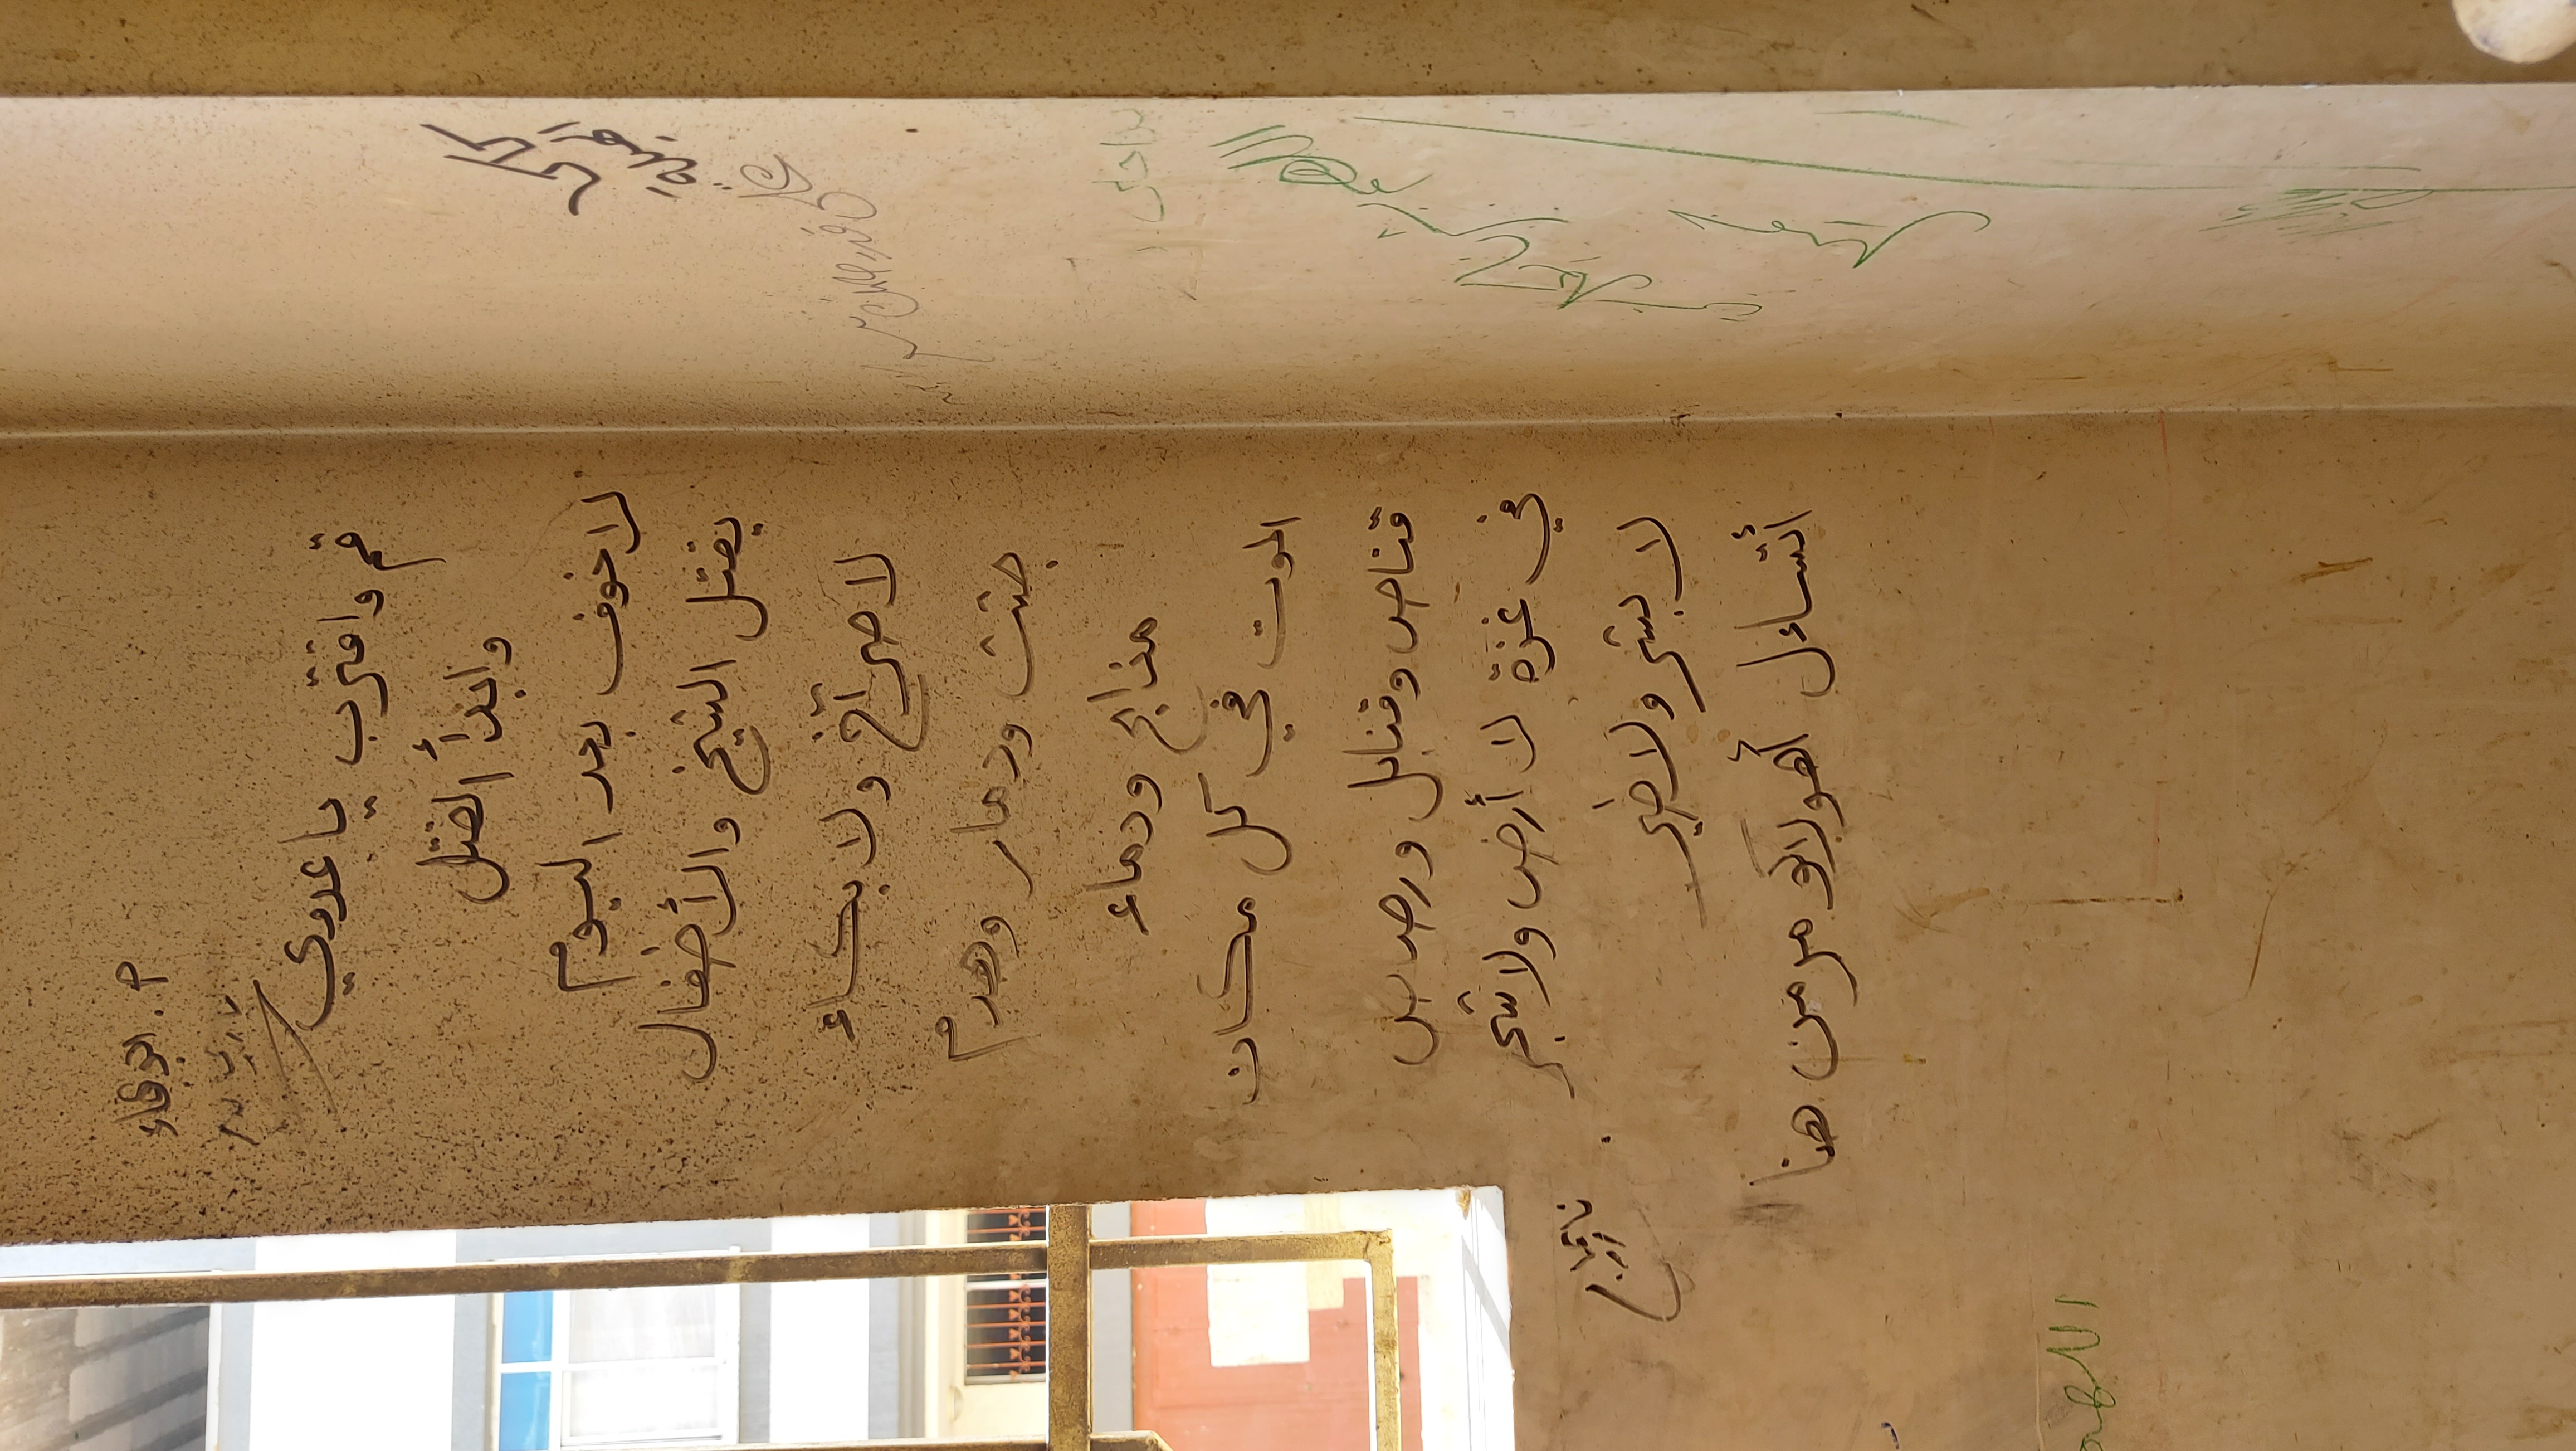 قم واقترب يا عدوي
وابدأ القتل
لا خوف بعد اليوم
بقتل الشيخ والأطفال
لا صرآخ ولا بكاء
جثث ودمار وهدم
مذابح ودماء
الموت في كل مكان
قناص وقنابل ورصاص
في غزة لا أرض ولا شجر
لا بشر ولا طير
أتساءل أهولاكو مر من هنا
كاكا
الهبلة
على قدر
اللهم بشرنا بكل شيء
جميل
اللهم